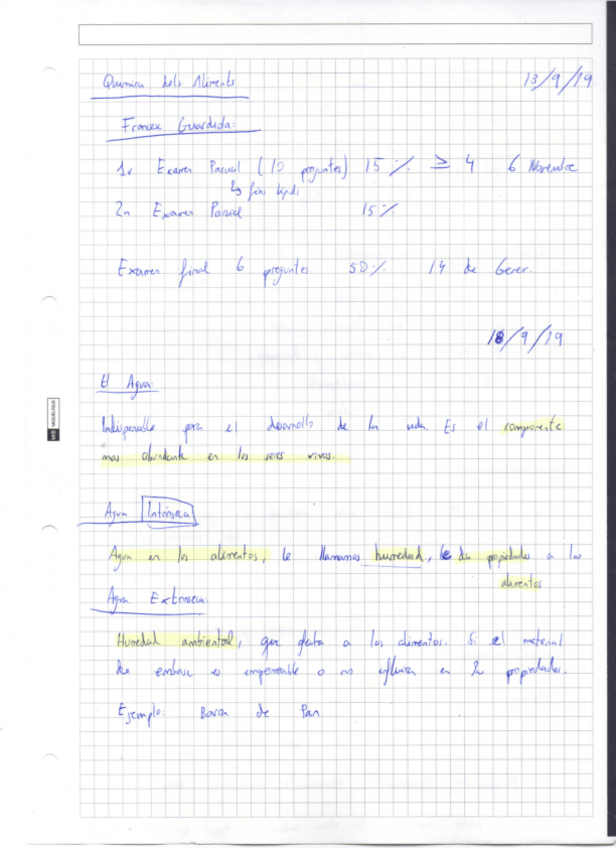 Quimica dels Aliments 13/9/19
Francesc Guardiola:
1r Examen Parcial (10 preguntes) 15% ≥ 4 6 Novembre
↳ fins lipids
2n Examen Parcial 15%
Examen final 6 preguntes 50% 14 de Gener.
18/9/19
El Agua:
Indispensable para el desarrollo de la vida. Es el componente
mas abundante en los seres vivos.
Agua Intrinseca
Agua en los alimentos, le llamamos humedad, le da propiedades a los
alimentos
Agua Extrinseca:
Humedad ambiental, que afecta a los alimentos. Si el material
de embase es impermeable o no influira en las propiedades.
Ejemplo: Barra de Pan
MIQUELRIUS